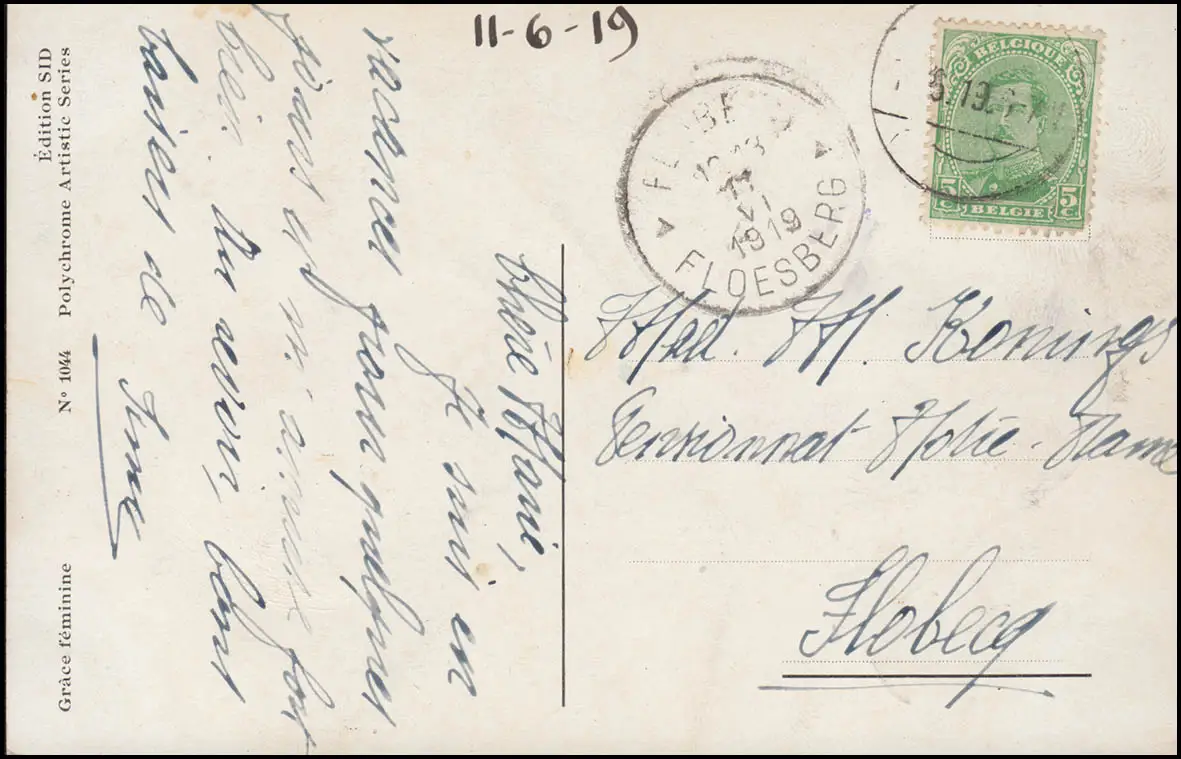 11-6-19
BELGIQUE
5c 5c
BELGIE
6.19
FLOESBERG
11
VI
1919
Édition SID
Polychrome Artistic Series
Nº 1044
Grâce féminine
Chère Marie,
Je suis en
vacances pour quelques
jours et m'amuse fort
bien. Au revoir, bons
baisers de
Irma
Mad. M. Konings
Pensionnat Notre-Dame
Flobecq